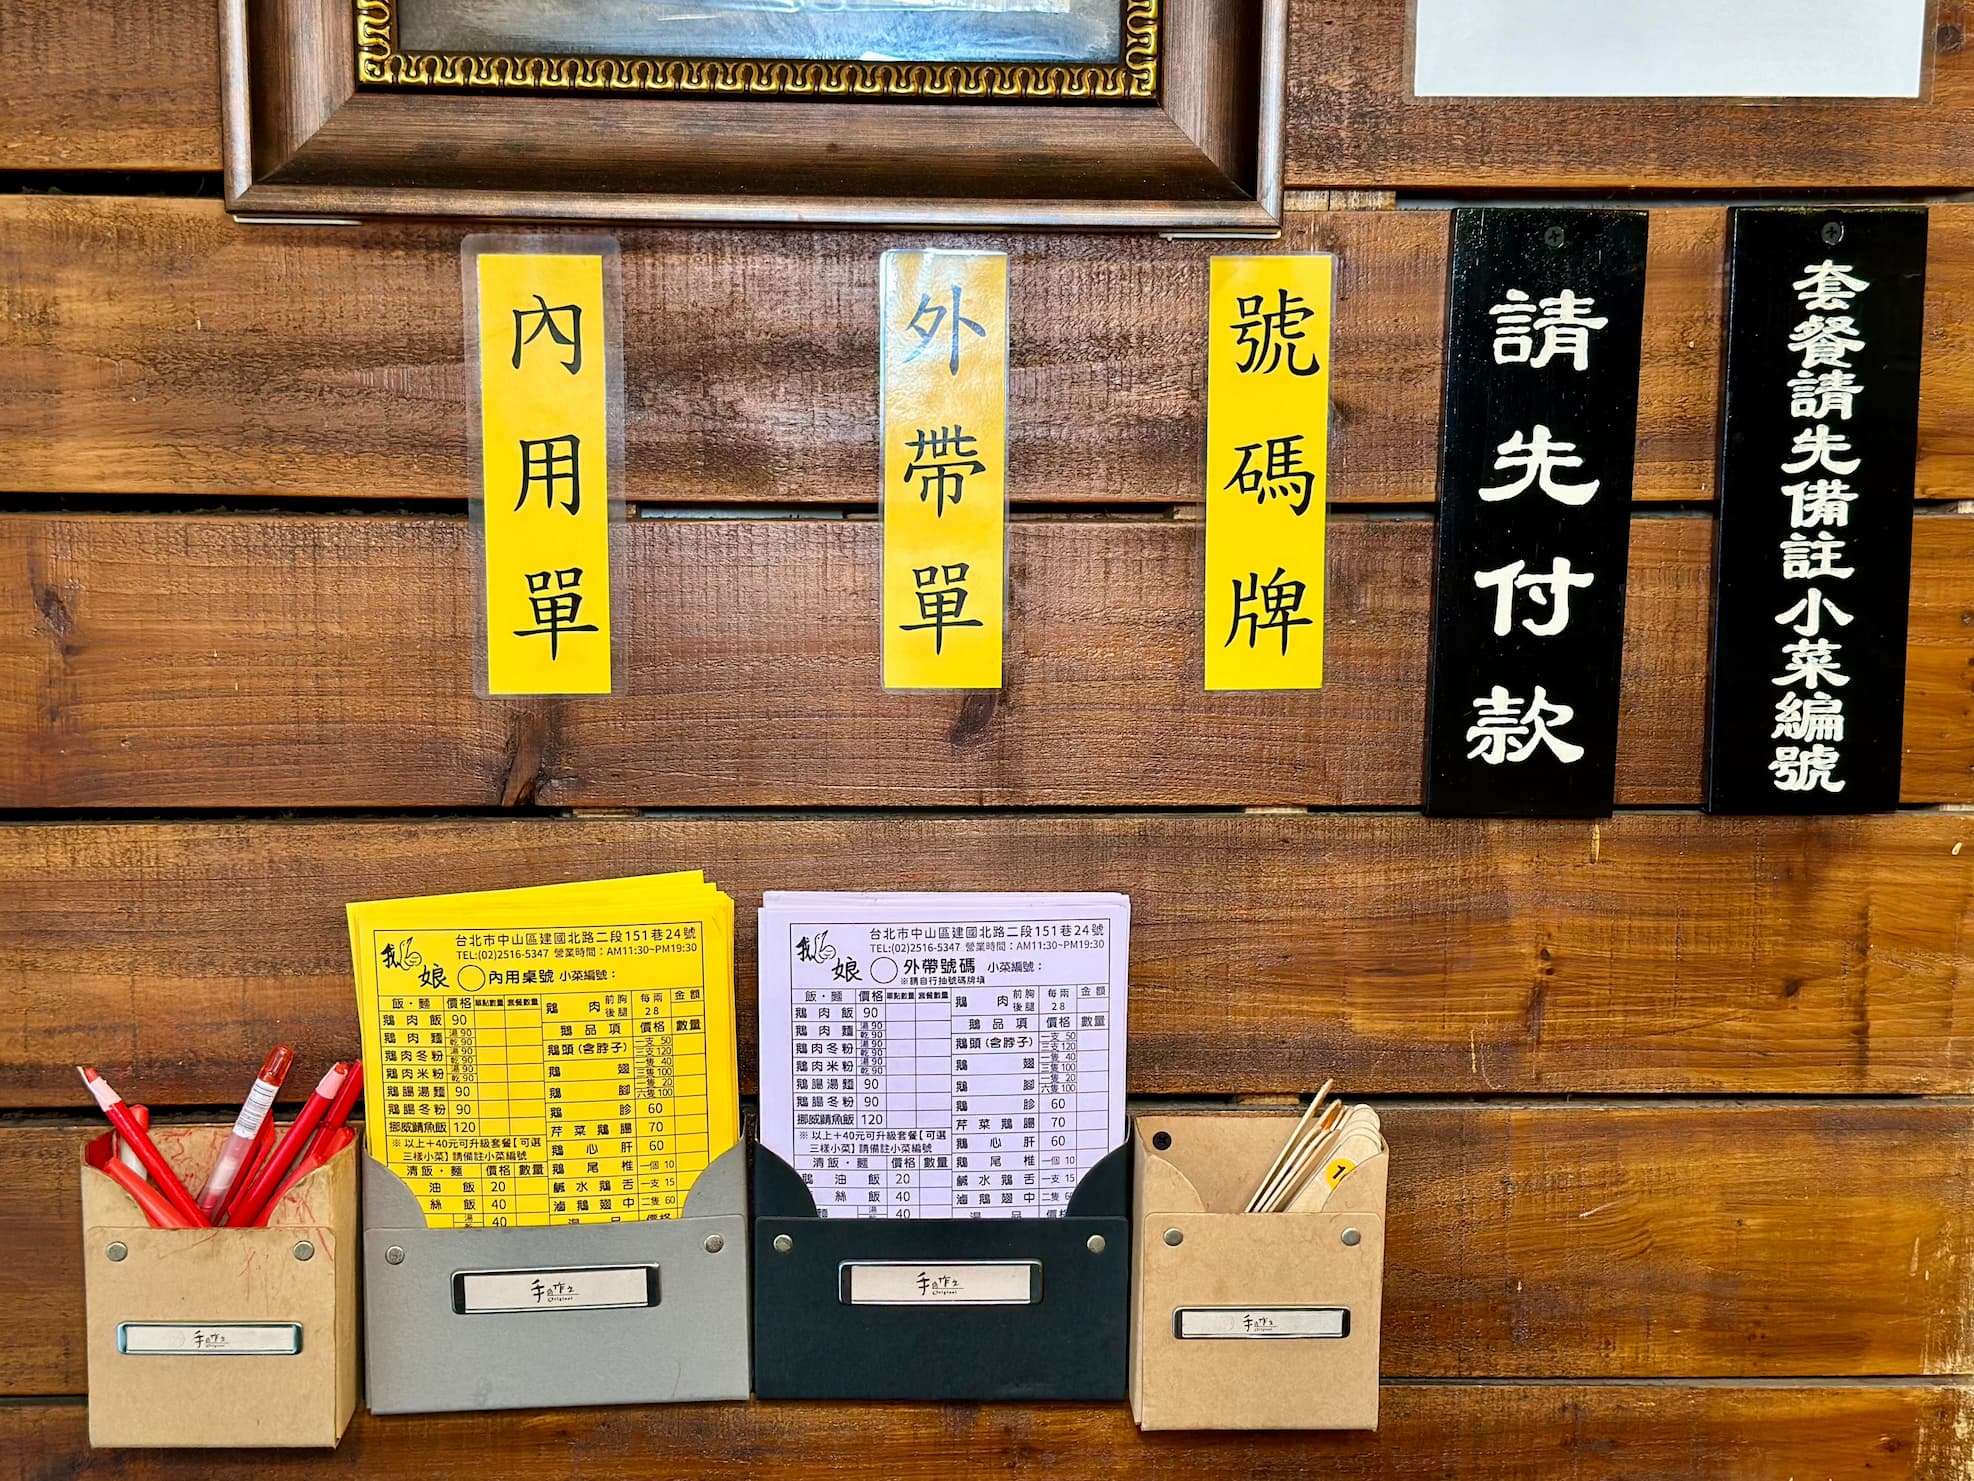 內用單
外帶單
號碼牌
請先付款
套餐請先備註小菜編號
台北市中山區建國北路二段151巷24號
TEL:(02)2516-5347 營業時間：AM11:30~PM19:30
娘
內用桌號 小菜編號：
飯・麵 價格 單點數量 套餐數量
鵝肉飯 90
鵝肉麵 湯90 乾90
鵝肉冬粉 湯90 乾90
鵝肉米粉 湯90 乾90
鵝腸湯麵 90
鵝腸冬粉 90
挪威鯖魚飯 120
※ 以上＋40元可升級套餐【可選
三樣小菜】請備註小菜編號
清飯・麵 價格 數量
油飯 20
絲飯 40
湯 40
鵝肉 前胸 後腿 每兩 28 金額
鵝品項 價格 數量
鵝頭(含脖子) 一支 50 三支120
鵝翅 一隻 40 三隻100
鵝腳 一隻 20 六隻100
鵝胗 60
芹菜鵝腸 70
鵝心肝 60
鵝尾椎 一個 10
鹹水鵝舌 一支 15
滷鵝翅中 二隻 60
湯品 價格
台北市中山區建國北路二段151巷24號
TEL:(02)2516-5347 營業時間：AM11:30~PM19:30
娘
外帶號碼 小菜編號：
※請自行抽號碼牌填
飯・麵 價格 單點數量 套餐數量
鵝肉飯 90
鵝肉麵 湯90 乾90
鵝肉冬粉 湯90 乾90
鵝肉米粉 湯90 乾90
鵝腸湯麵 90
鵝腸冬粉 90
挪威鯖魚飯 120
※ 以上＋40元可升級套餐【可選
三樣小菜】請備註小菜編號
清飯・麵 價格 數量
鵝油飯 20
絲飯 40
麵 湯 40
鵝肉 前胸 後腿 每兩 28 金額
鵝品項 價格 數量
鵝頭(含脖子) 一支 50 三支120
鵝翅 一隻 40 三隻100
鵝腳 一隻 20 六隻100
鵝胗 60
芹菜鵝腸 70
鵝心肝 60
鵝尾椎 一個 10
鹹水鵝舌 一支 15
滷鵝翅中 二隻
湯品
1
手作之
Original
手作之
Original
手作之
Original
手作之
Original